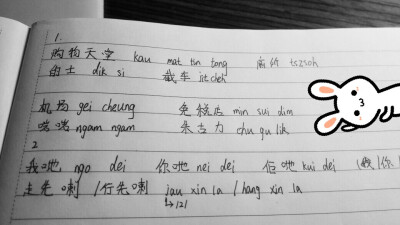 1.
购物天堂 kau mat tin tong 厕所 tszsoh
的士 dik si 截车 jitcheh
机场 gei cheung 免税店 min sui dim
啱啱 ngam ngam 朱古力 chu gu lik
2
我哋 ngo dei 你哋 nei dei 佢哋 kui dei
走先喇 / 行先喇 jau xin la / hang xin la